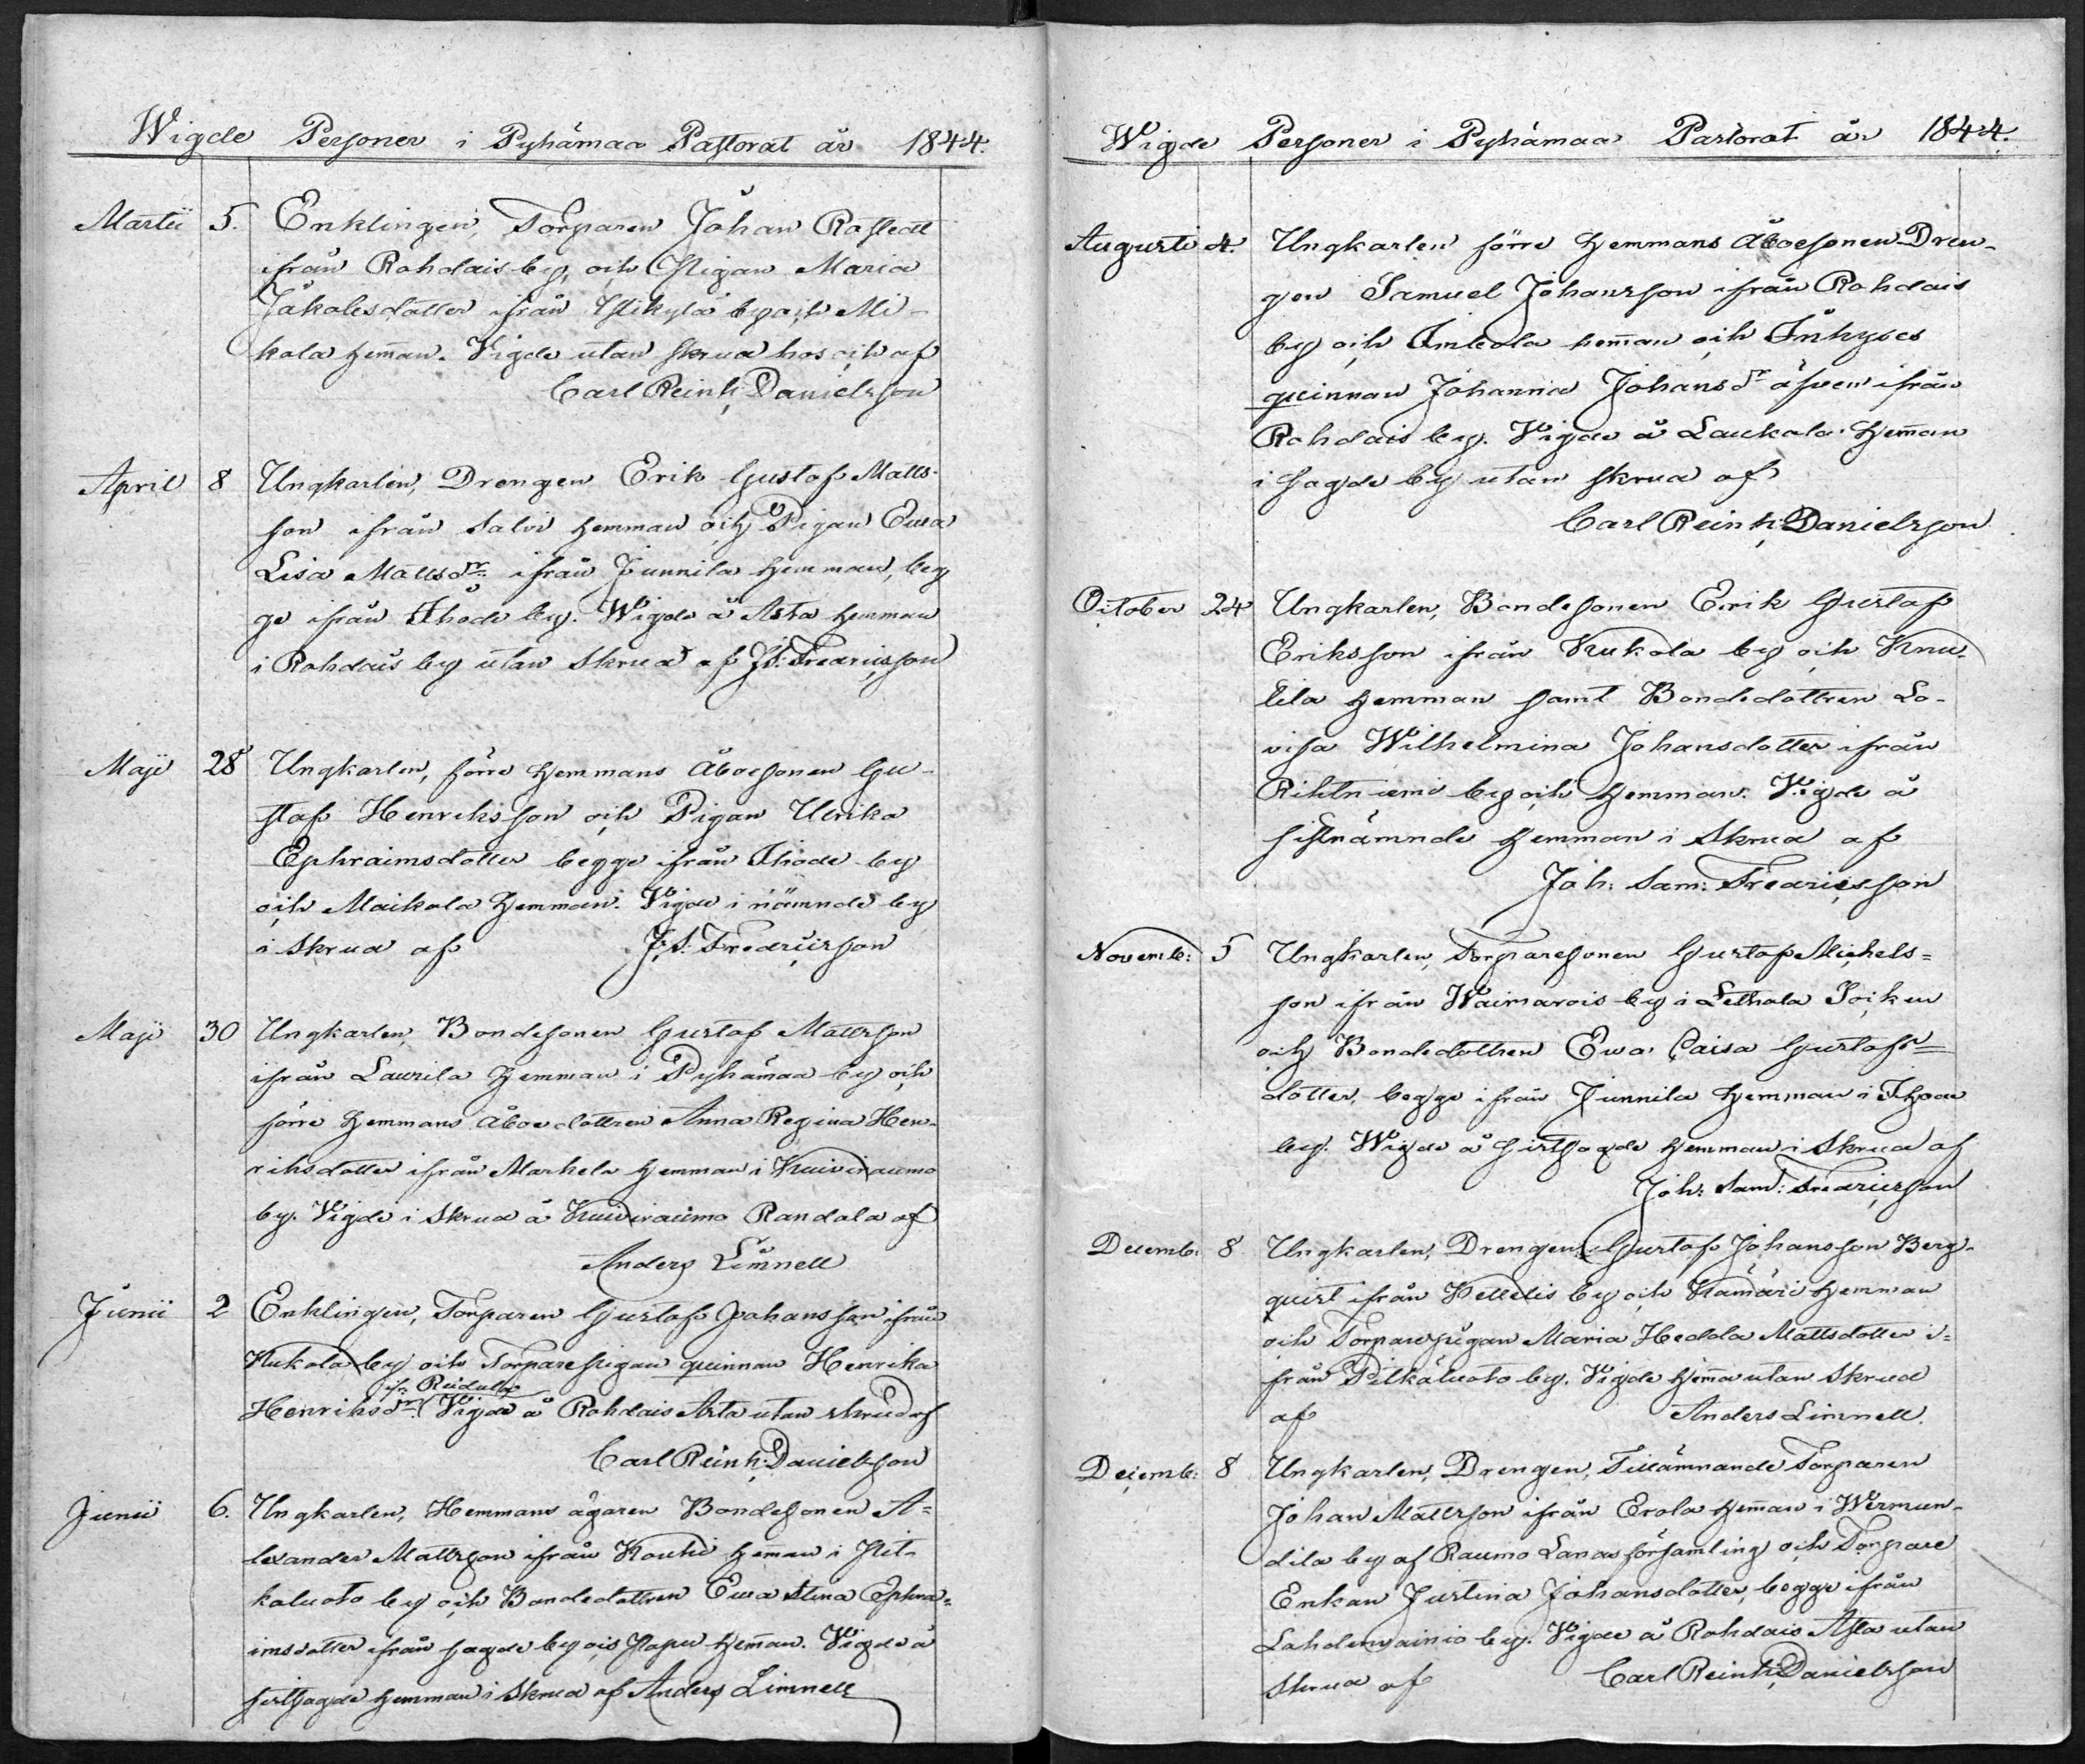 Wigde Personer i Pyhämaa Pastorat år 1844.
Martii 5. Enklingen, Torparen Johan Rostedt
ifrån Rohdais by, och Pigan Maria
Jakobsdotter ifrån Ylikylä by och Mi-
kola hem̄an. Vigde utan skrud hos och af
Carl Reinh: Danielsson
April 8 Ungkarlen, Drengen Erik Gustaf Matts-
son ifrån Salvi hemman och Pigan Ewa
Lisa Mattsdr ifrån Junnila hemman, beg
ge ifrån Ihode by. Wigde å Asta hemman
i Rohdais by utan Skrud af J.S: Fredricsson
Maji 28 Ungkarlen, förre Hemmans Åboesonen Gu-
staf Henriksson och Pigan Ulrika
Ephraimsdotter begge ifrån Ihode by
och Maikola Hemman. Vigde i nämnde by
i Skrud af J.S: Fredricsson
Maji 30 Ungkarlen, Bondesonen Gustaf Mattsson
ifrån Laurila Hemman i Pyhämaa by och
förre Hemmans Åboedottren Anna Regina Hen-
riksdotter ifrån Markela hemman i Kuiviraumo
by. Vigde i Skrud å Kuiviraumo Randala af
Anders Limnell
Junii 2 Enklingen, Torparen Gustaf Johansson ifrån
Kukola by och Torparepigan quinnan Henrika
ifr:
Henriksdr Vigde å Rohdais Asta utan skrud af
Carl Reinh: Danielsson
Junii 6. Ungkarlen, Hemmans ägaren Bondesonen A=
lexander Mattsson ifrån Kouhi hem̄an i Pit-
käluoto by och Bondedottren Ewa Stina Ephra=
imsdotter ifrån sagde by och hem̄an. Vigde å
sistsagde hemman i Skrud af Anders Limnell
Wigde Personer i Pyhämaa Pastorat år 1844.
Augusti 4. Ungkarlen förre Hemmans Åboesonen Dren-
gen Samuel Johansson ifrån Rohdais
by och Imbola hem̄an och Inhyses
quinnan Johanna Johansdr äfven ifrån
Rohdais by. Vigde å Laukola Hem̄an
i sagde by utan skrud af
Carl Reinh: Danielsson
October 24 Ungkarlen, Bondesonen Erik Gustaf
Eriksson ifrån Kukola by och Knu-
tila Hemman samt Bondedottren Lo-
visa Wilhelmina Johansdotter ifrån
Rihtniemi by och Hemman. Vigde å
sistnämnde Hemman i Skrud af
Joh: Sam: Fredricsson
Novemb: 5 Ungkarlen, Torparesonen Gustaf Michels=
son ifrån Waimarois by i Lethala Socken
och Bondedottren Ewa Caisa Gustafs=
dotter, begge ifrån Junnila Hemman i Ihode
by. Wigde å sistsagde Hemman i Skrud af
Joh: Sam: Fredricsson
Decemb: 8 Ungkarlen, Drengen Gustaf Johansson Berg-
quist ifrån Kettelis by och Kamari Hemman
och Torparepigan Maria Hedda Mattsdotter i=
från Pitkäluoto by. Vigde hem̄a utan Skrud
af Anders Limnell.
Decemb: 8 Ungkarlen, Drengen, Tillämnande Torparen
Johan Mattsson ifrån Erola Hem̄an i Wermun-
dila by af Raumo Lands församling och Torpare
Enkan Justina Johansdotter, begge ifrån
Lahdenvainio by. Vigde å Rohdais Asta utan
Skrud af Carl Reinh: Danielsson